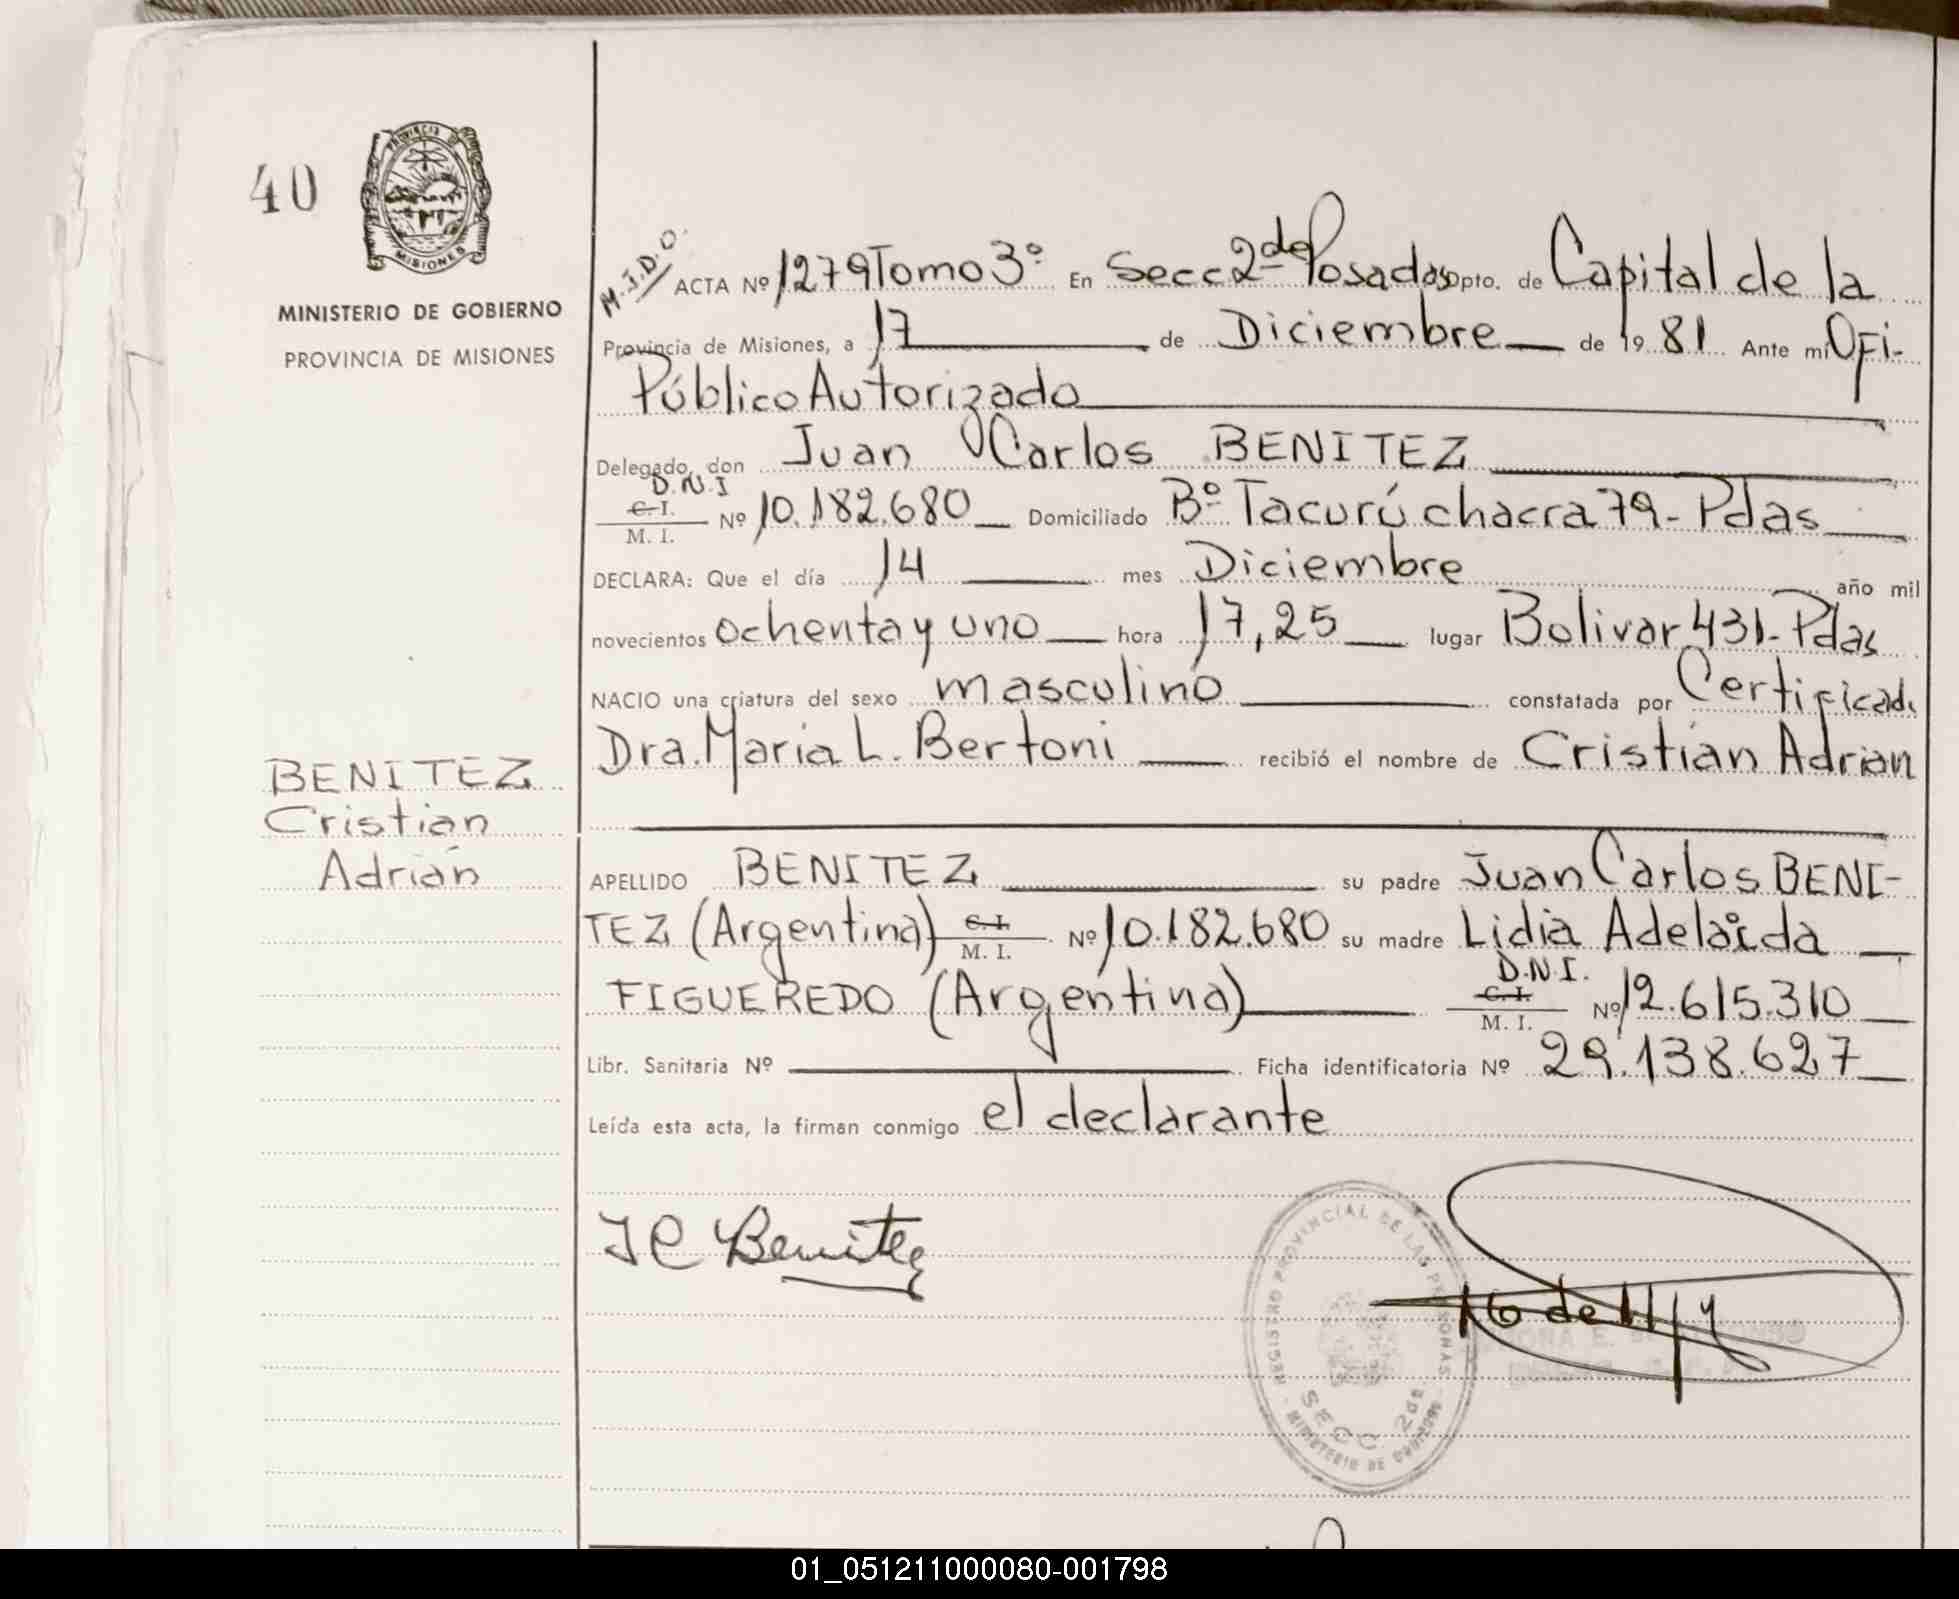 40
PROVINCIA DE
MISIONES
MINISTERIO DE GOBIERNO
PROVINCIA DE MISIONES
BENITEZ
Cristian
Adrián
M.I.D.O.
ACTA Nº 1279 Tomo 3º En Secc 2da Posadas Dpto. de Capital de la
Provincia de Misiones, a 17 de Diciembre de 19 81 Ante mí Ofi-
Público Autorizado
Delegado, don Juan Carlos BENITEZ
D.N.I
C. I.
M. I. Nº 10.182.680 Domiciliado Bº Tacurú chacra 79 - Pdas
DECLARA: Que el día 14 mes Diciembre año mil
novecientos ochenta y uno hora 17,25 lugar Bolivar 431 - Pdas
NACIO una criatura del sexo masculino constatada por Certificado
Dra. María L. Bertoni recibió el nombre de Cristian Adrian
APELLIDO BENITEZ su padre Juan Carlos BENI-
TEZ (Argentina) C. I. M. I. Nº 10.182.680 su madre Lidia Adelaida
D.N.I.
FIGUEREDO (Argentina) C. I. M. I. Nº 12.615.310
Libr. Sanitaria Nº Ficha identificatoria Nº 29.138.627
Leída esta acta, la firman conmigo el declarante
JC Benitez
REGISTRO PROVINCIAL DE LAS PERSONAS
SECC. 2da
MINISTERIO DE GOBIERNO
01_051211000080-001798